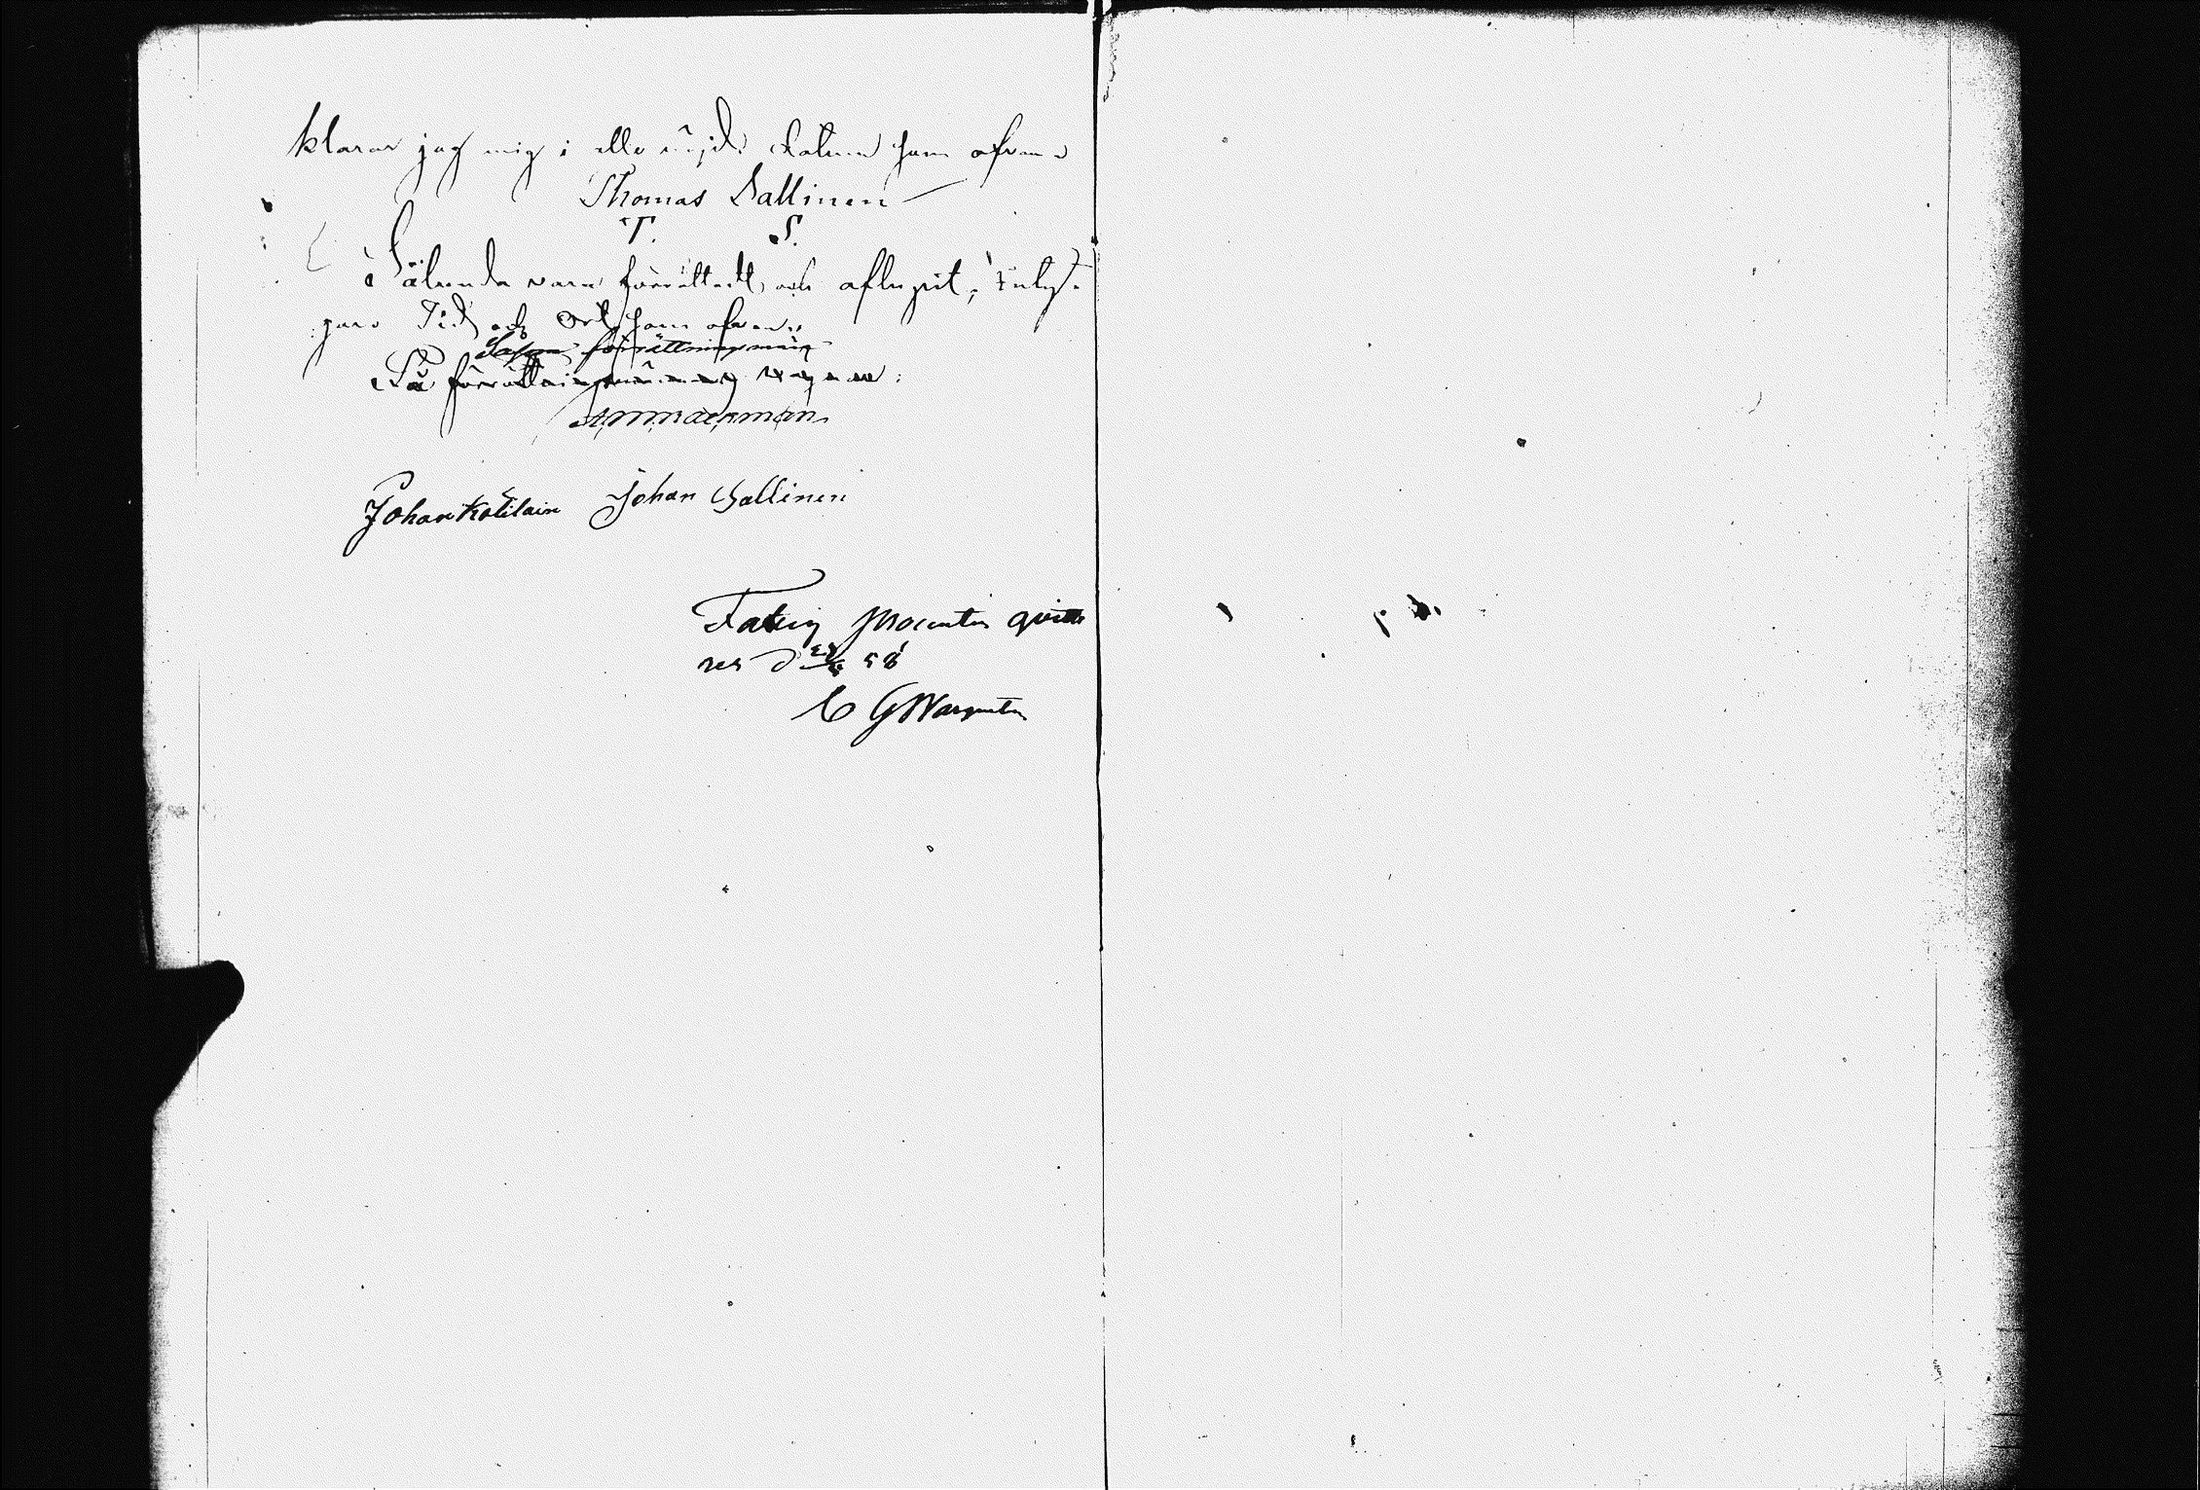 klarar jag mig i alla nöjd. Datum som ofvan
Thomas Sallinen
T. S.
Sålunda vara förrättadt och aflupit, intyga
Tid och Ort som ofvan.
Såsom förrättningsman
På förrättningsmannens vägnar:
Johan Kotilain Johan Sallinen
Fattig Procenten qvitte
res d 58
C G Wargentin